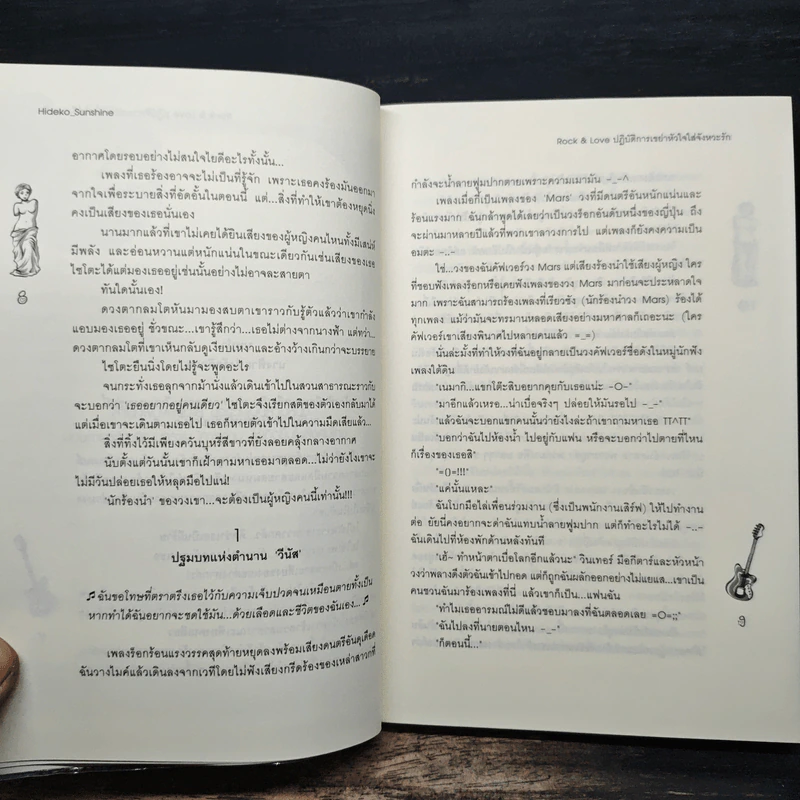 Hideko_Sunshine
อากาศโดยรอบอย่างไม่สนใจไยดีอะไรทั้งนั้น...
เพลงที่เธอร้องอาจจะไม่เป็นที่รู้จัก เพราะเธอคงร้องมันออกมา
จากใจเพื่อระบายสิ่งที่อัดอั้นในตอนนี้ แต่...สิ่งที่ทำให้เขาต้องหยุดนิ่ง
คงเป็นเสียงของเธอนั่นเอง
นานมากแล้วที่เขาไม่เคยได้ยินเสียงของผู้หญิงคนไหนทั้งมีเสน่ห์
มีพลัง และอ่อนหวานแต่หนักแน่นในขณะเดียวกันเช่นเสียงของเธอ
ไซโตะได้แต่มองเธออยู่เช่นนั้นอย่างไม่อาจละสายตา
ทันใดนั้นเอง!
ดวงตากลมโตหันมามองสบตาเขาราวกับรู้ตัวแล้วว่าเขากำลัง
แอบมองเธออยู่ ชั่วขณะ...เขารู้สึกว่า...เธอไม่ต่างจากนางฟ้า แต่ทว่า...
ดวงตากลมโตที่เขาเห็นกลับดูเงียบเหงาและอ้างว้างเกินกว่าจะบรรยาย
ไซโตะยืนนิ่งโดยไม่รู้จะพูดอะไร
จนกระทั่งเธอลุกจากม้านั่งแล้วเดินเข้าไปในสวนสาธารณะราวกับ
จะบอกว่า 'เธออยากอยู่คนเดียว' ไซโตะจึงเรียกสติของตัวเองกลับมาได้
แต่เมื่อเขาจะเดินตามเธอไป เธอก็หายตัวเข้าไปในความมืดเสียแล้ว...
สิ่งที่ทิ้งไว้มีเพียงควันบุหรี่สีขาวที่ยังลอยคลุ้งกลางอากาศ
นับตั้งแต่วันนั้นเขาก็เฝ้าตามหาเธอมาตลอด...ไม่ว่ายังไงเขาจะ
ไม่มีวันปล่อยเธอให้หลุดมือไปแน่!
'นักร้องนำ' ของวงเขา...จะต้องเป็นผู้หญิงคนนี้เท่านั้น!!!
8
1
ปฐมบทแห่งตำนาน 'วีนัส'
♫ ฉันขอโทษที่ตราตรึงเธอไว้กับความเจ็บปวดจนเหมือนตายทั้งเป็น
หากทำได้ฉันอยากจะชดใช้มัน...ด้วยเลือดและชีวิตของฉันเอง... ♫
เพลงร็อกร้อนแรงวรรคสุดท้ายหยุดลงพร้อมเสียงดนตรีอันดุเดือด
ฉันวางไมค์แล้วเดินลงจากเวทีโดยไม่ฟังเสียงกรีดร้องของเหล่าสาวกที่
Rock & Love ปฏิบัติการเขย่าหัวใจใส่จังหวะรัก
กำลังจะน้ำลายฟูมปากตายเพราะความเมามัน -_-^
เพลงเมื่อกี้ก็เป็นเพลงของ 'Mars' วงที่มีดนตรีอันหนักแน่นและ
ร้อนแรงมาก ฉันกล้าพูดได้เลยว่าเป็นวงร็อกอันดับหนึ่งของญี่ปุ่น ถึง
จะผ่านมาหลายปีแล้วที่พวกเขาลาวงการไป แต่เพลงก็ยังคงความเป็น
อมตะ -..-
ใช่...วงของฉันคัฟเวอร์วง Mars แต่เสียงร้องนำใช้เสียงผู้หญิง ใคร
ที่ชอบฟังเพลงร็อกหรือเคยฟังเพลงของวง Mars มาก่อนจะประหลาดใจ
มาก เพราะฉันสามารถร้องเพลงที่เรียวซัง (นักร้องวง Mars) ร้องได้
ทุกเพลง แม้ว่ามันจะทรมานหลอดเสียงอย่างมหาศาลก็เถอะนะ (ใคร
คัฟเวอร์เขาเสียงพินาศไปหลายคนแล้ว =_=)
นั่นล่ะมั้งที่ทำให้วงที่ฉันอยู่กลายเป็นวงคัฟเวอร์ชื่อดังในหมู่นักฟัง
เพลงใต้ดิน
"เนมากิ...แขกโต๊ะสิบอยากคุยกับเธอแน่ะ -O-"
"มาอีกแล้วเหรอ...น่าเบื่อจริงๆ ปล่อยให้มันรอไป -_-"
"แล้วฉันจะบอกแขกคนนั้นว่ายังไงล่ะถ้าเขาถามหาเธอ TT^TT"
"บอกว่าฉันไปห้องน้ำ ไปอยู่กับแฟน หรือจะบอกว่าไปตายที่ไหน
ก็เรื่องของเธอสิ"
"=[]=!!!"
"แค่นั้นแหละ"
ฉันโบกมือไล่เพื่อนร่วมงาน (ซึ่งเป็นพนักงานเสิร์ฟ) ให้ไปทำงาน
ต่อ ยัยนี่คงอยากจะด่าฉันแทบน้ำลายฟูมปาก แต่ก็ทำอะไรไม่ได้ -..-
ฉันเดินไปที่ห้องพักด้านหลังทันที
"เฮ้~ ทำหน้าตาเบื่อโลกอีกแล้วนะ" วินเทอร์ มือกีตาร์และหัวหน้า
วงว่าพลางดึงตัวฉันเข้าไปกอด แต่ก็ถูกฉันผลักออกอย่างไม่แยแส...เขาเป็น
คนชวนฉันมาร้องเพลงที่นี่ แล้วเขาก็เป็น...แฟนฉัน
"ทำไมเธออารมณ์ไม่ดีแล้วชอบมาลงที่ฉันตลอดเลย =O=;;"
"ฉันไปลงที่นายตอนไหน -_-"
"ก็ตอนนี้..."
9